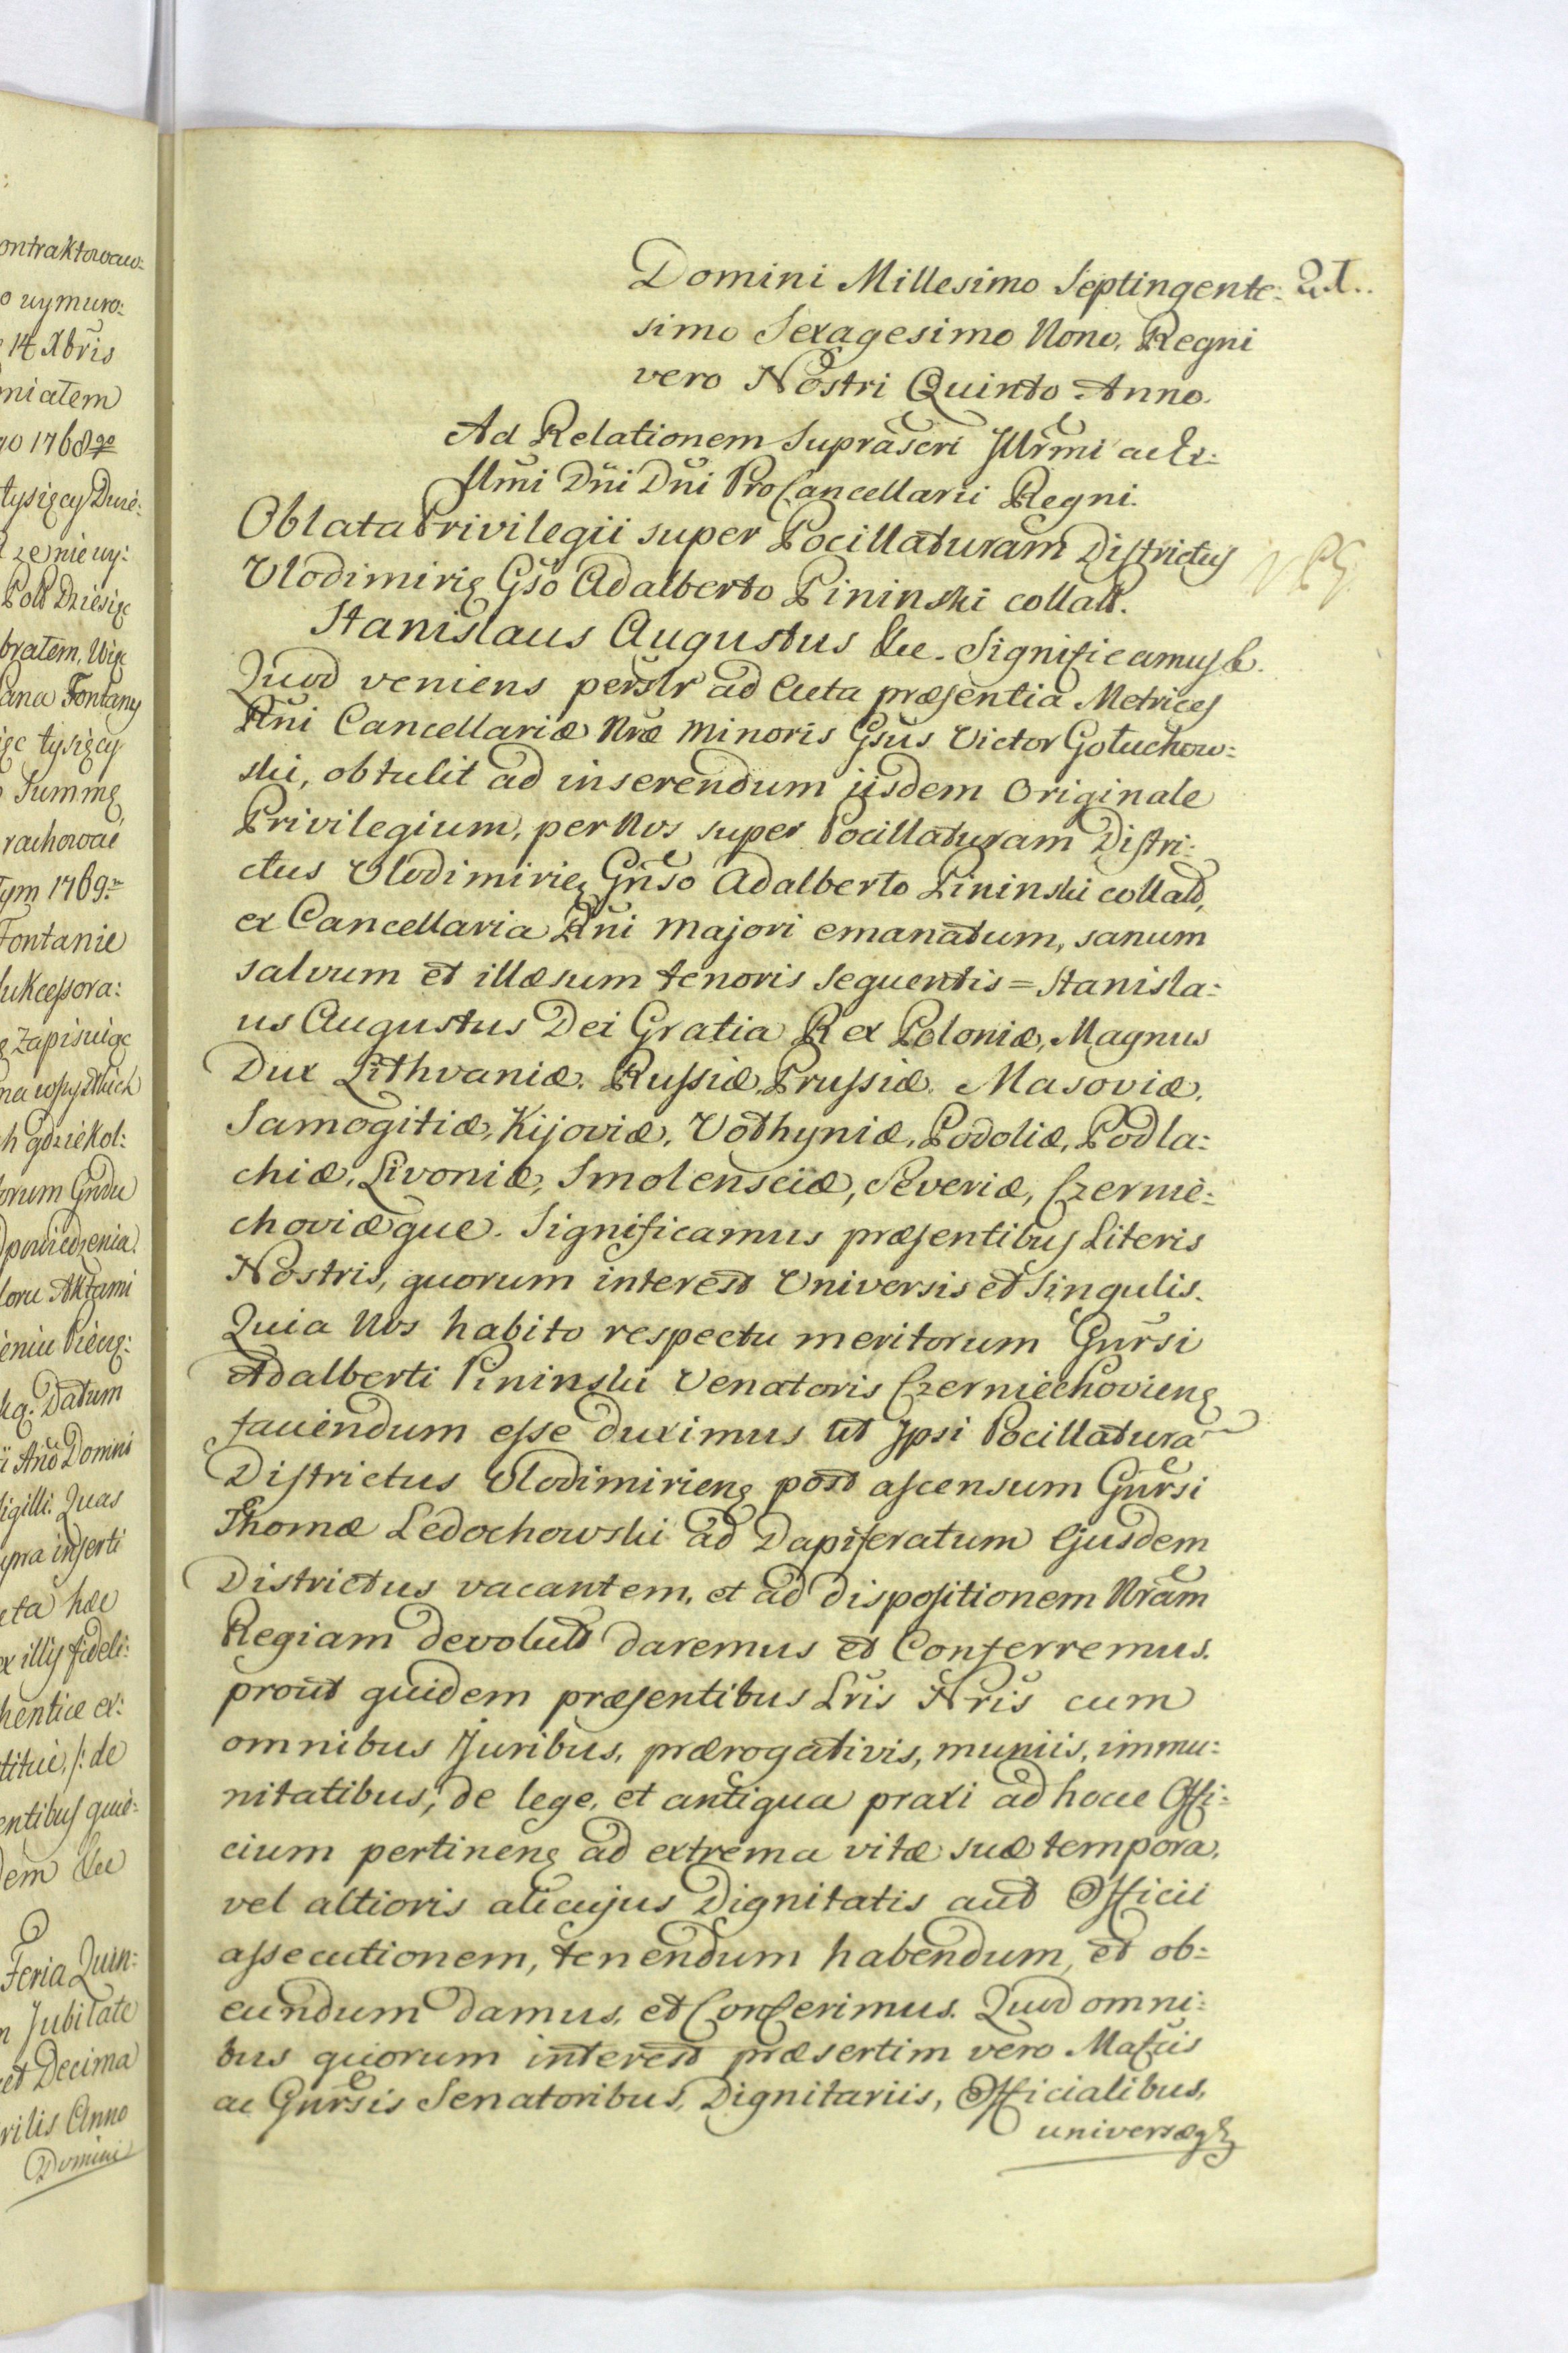 ontraktowaw:
o uymuro:
14 Xbris
miatem
go 1768go
tysięcy Dwie:
Pod Dziesięc
bratem, Więc
Pana Fontany
ięc tysięcy
Summę
rachowac
Tym 1769.
Fontanie
Sukcessora:
zapisuięc
na wszystkich
h gdziekol:
orum Grodu
powiedzenia
loru Aktami
Datum
ii Anō Domini
Sigilli. Quas
upra inserti
cta hæc
ex illis fideli:
hentice ex:
de
entibus quie:
dem &c
Feria Quin:
m Jubilate
et Decima
rilis Anno
Domini
Domini Millesimo Septingente: 21.
simo Sexagesimo Nono, Regni
vero Nostri Quinto Anno.
Ad Relationem Suprascri Jllrmi ac Ex:
llmi Dñi Dñi ProCancellarii Regni.
Oblata Privilegii super Pocillaturam Districtus
Vlodimirię Gso Adalberto Pininski collatt.
Stanislaus Augustus &c. Significamus &.
Quod veniens perslr ad Acta præsentia Metrices
Rñi Cancellariæ Nræ Minoris Gsus Victor Gołuchow:
ski, obtulit ad inserendum iisdem Originale
Privilegium, per Nos super Pocillaturam Distri:
ctus Vlodimirieę Gnso Adalberto Pininski collatt,
ex Cancellaria Rñi Majori emanatum, sanum
salvum et illæsum tenoris sequentis = Stanisla:
us Augustus Dei Gratia Rex Poloniæ, Magnus
Dux Lithvaniæ. Russiæ, Prussiæ. Masoviæ.
Samogitiæ, Kijoviæ, Vołhyniæ, Podoliæ, Podla:
chiæ, Livoniæ, Smolensciæ, Severiæ, Czernie:
choviæque. Significamus præsentibus Literis
Nostris, quorum interest Universis et Singulis.
Quia Nos habito respectu meritorum Gnrsi
Adalberti Pininski Venatoris Czerniechovienę
favendum esse duximus ut Jpsi Pocillatura
Districtus Vlodimirienę post ascensum Gnrsi
Thomæ Ledochowski ad Dapiferatum Ejusdem
Districtus vacantem, et ad dispositionem Nram
Regiam devolutt daremus et Conferremus.
prout quidem præsentibus Lris Nris cum
omnibus Juribus, prærogativis, muniis, immu:
nitatibus, de lege, et antiqua praxi ad hocce Offi:
cium pertinenę ad extrema vitæ suæ tempora,
vel altioris alicujus Dignitatis aut Officii
assecutionem, tenendum habendum, et ob:
eundum damus, et Conferimus. Quod omni:
bus quorum interest præsertim vero Mafcis
ac Gnrsis Senatoribus, Dignitariis, Officialibus,
universæq